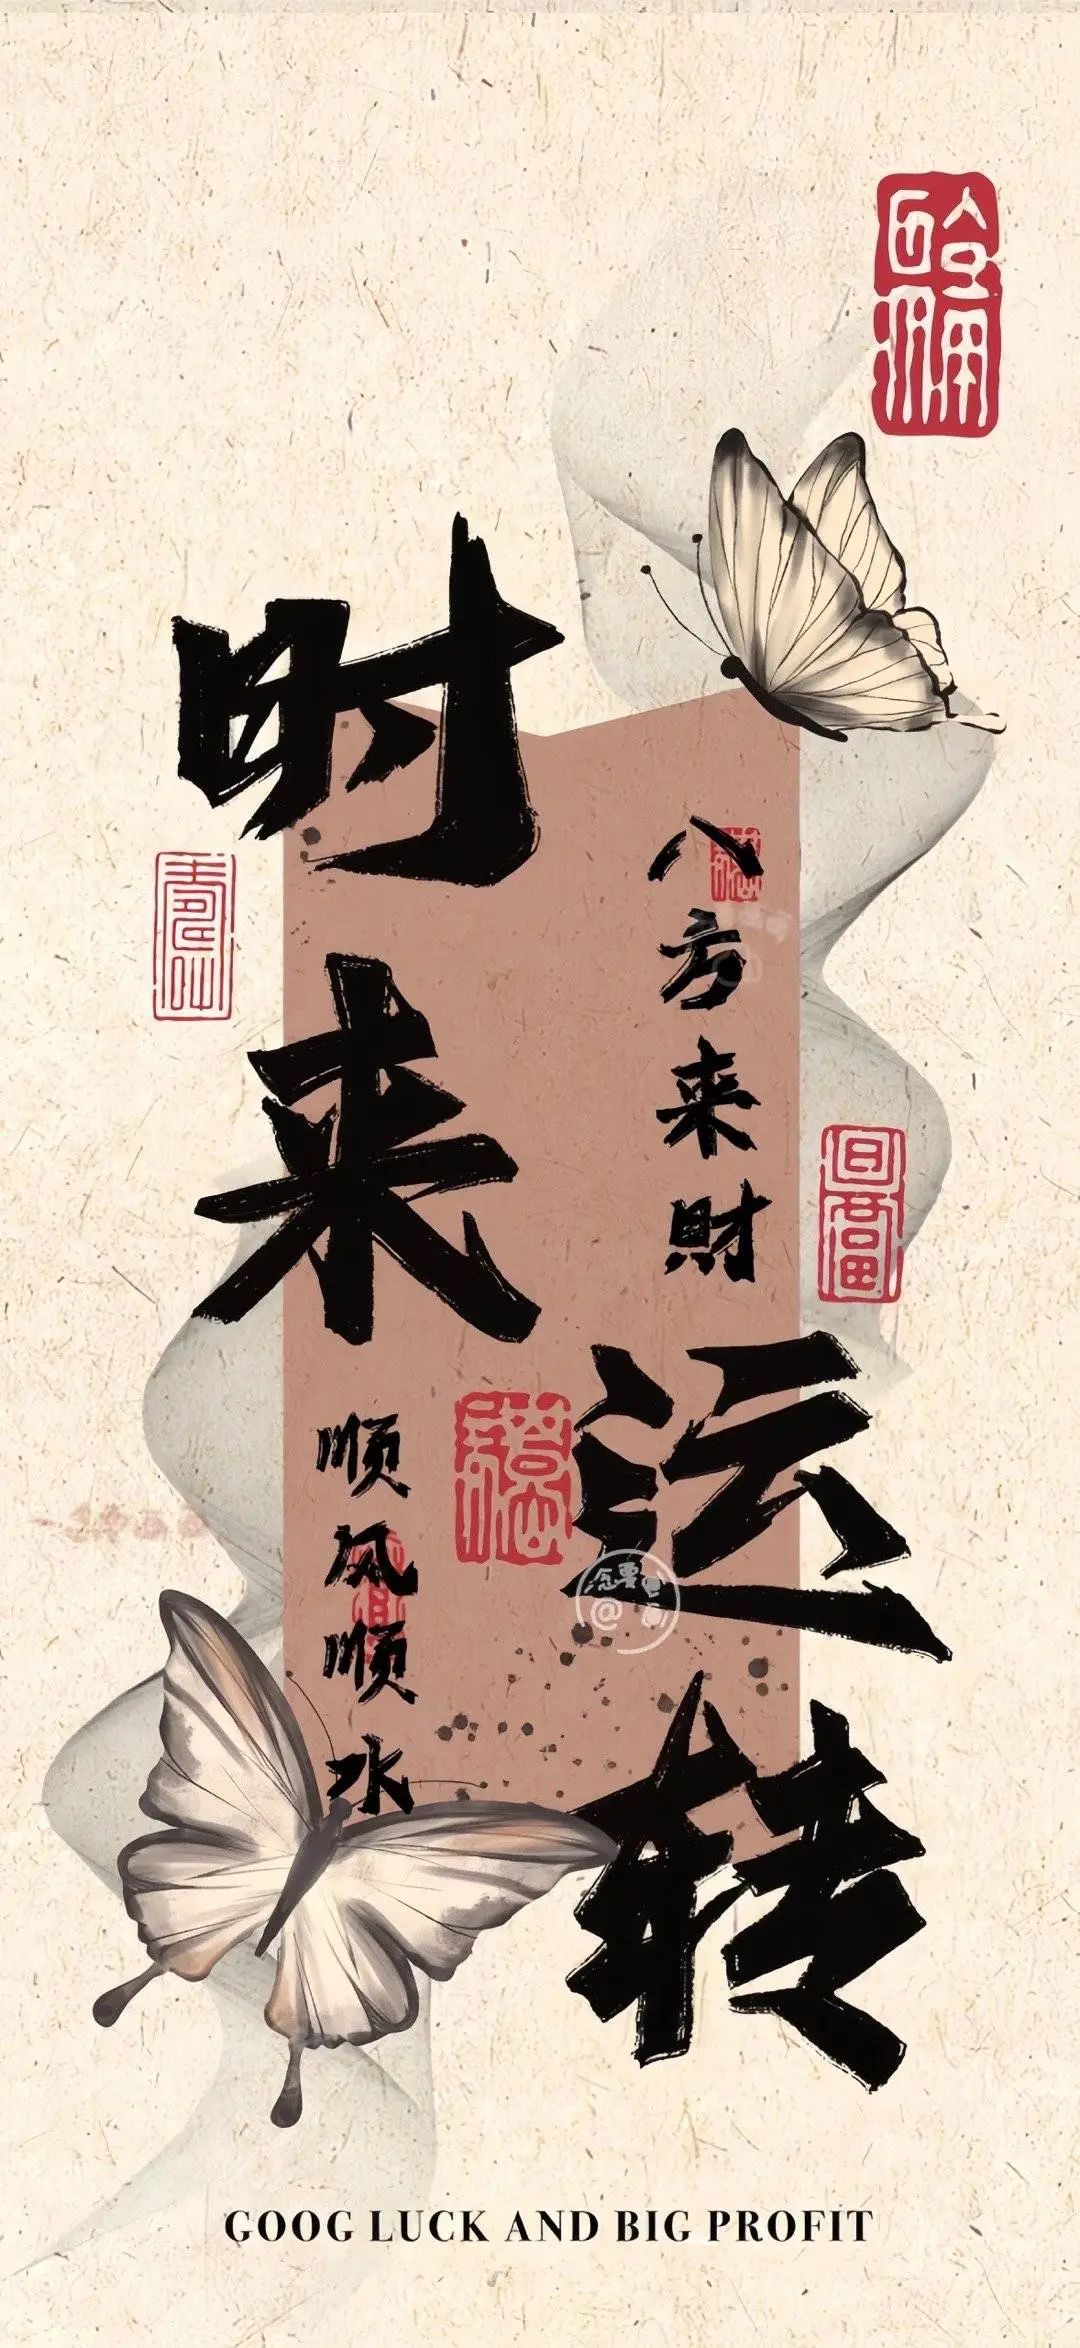 时来运转
八方来財
顺风顺水
GOOG LUCK AND BIG PROFIT